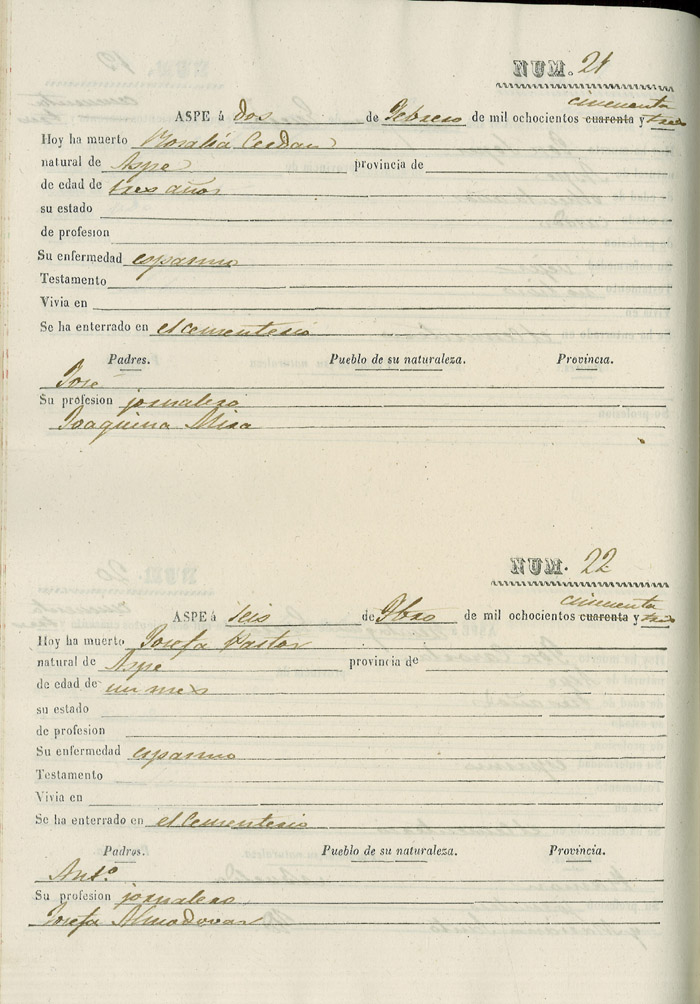 NUM. 21
cincuenta
ASPE á dos de Febrero de mil ochocientos cuarenta y tres
Hoy ha muerto Rosalia Cerdan
natural de Aspe provincia de
de edad de tres años
su estado
de profesion
Su enfermedad espasmo
Testamento
Vivia en
Se ha enterrado en el Cementerio
Padres. Pueblo de su naturaleza. Provincia.
Jose
Su profesion jornalero
Joaquina Mira
NUM. 22
cincuenta
ASPE á seis de Fbro de mil ochocientos cuarenta y tres
Hoy ha muerto Josefa Pastor
natural de Aspe provincia de
de edad de un mes
su estado
de profesion
Su enfermedad espasmo
Testamento
Vivia en
Se ha enterrado en el Cementerio
Padres. Pueblo de su naturaleza. Provincia.
Anto.
Su profesion jornalero
Josefa Almodovar